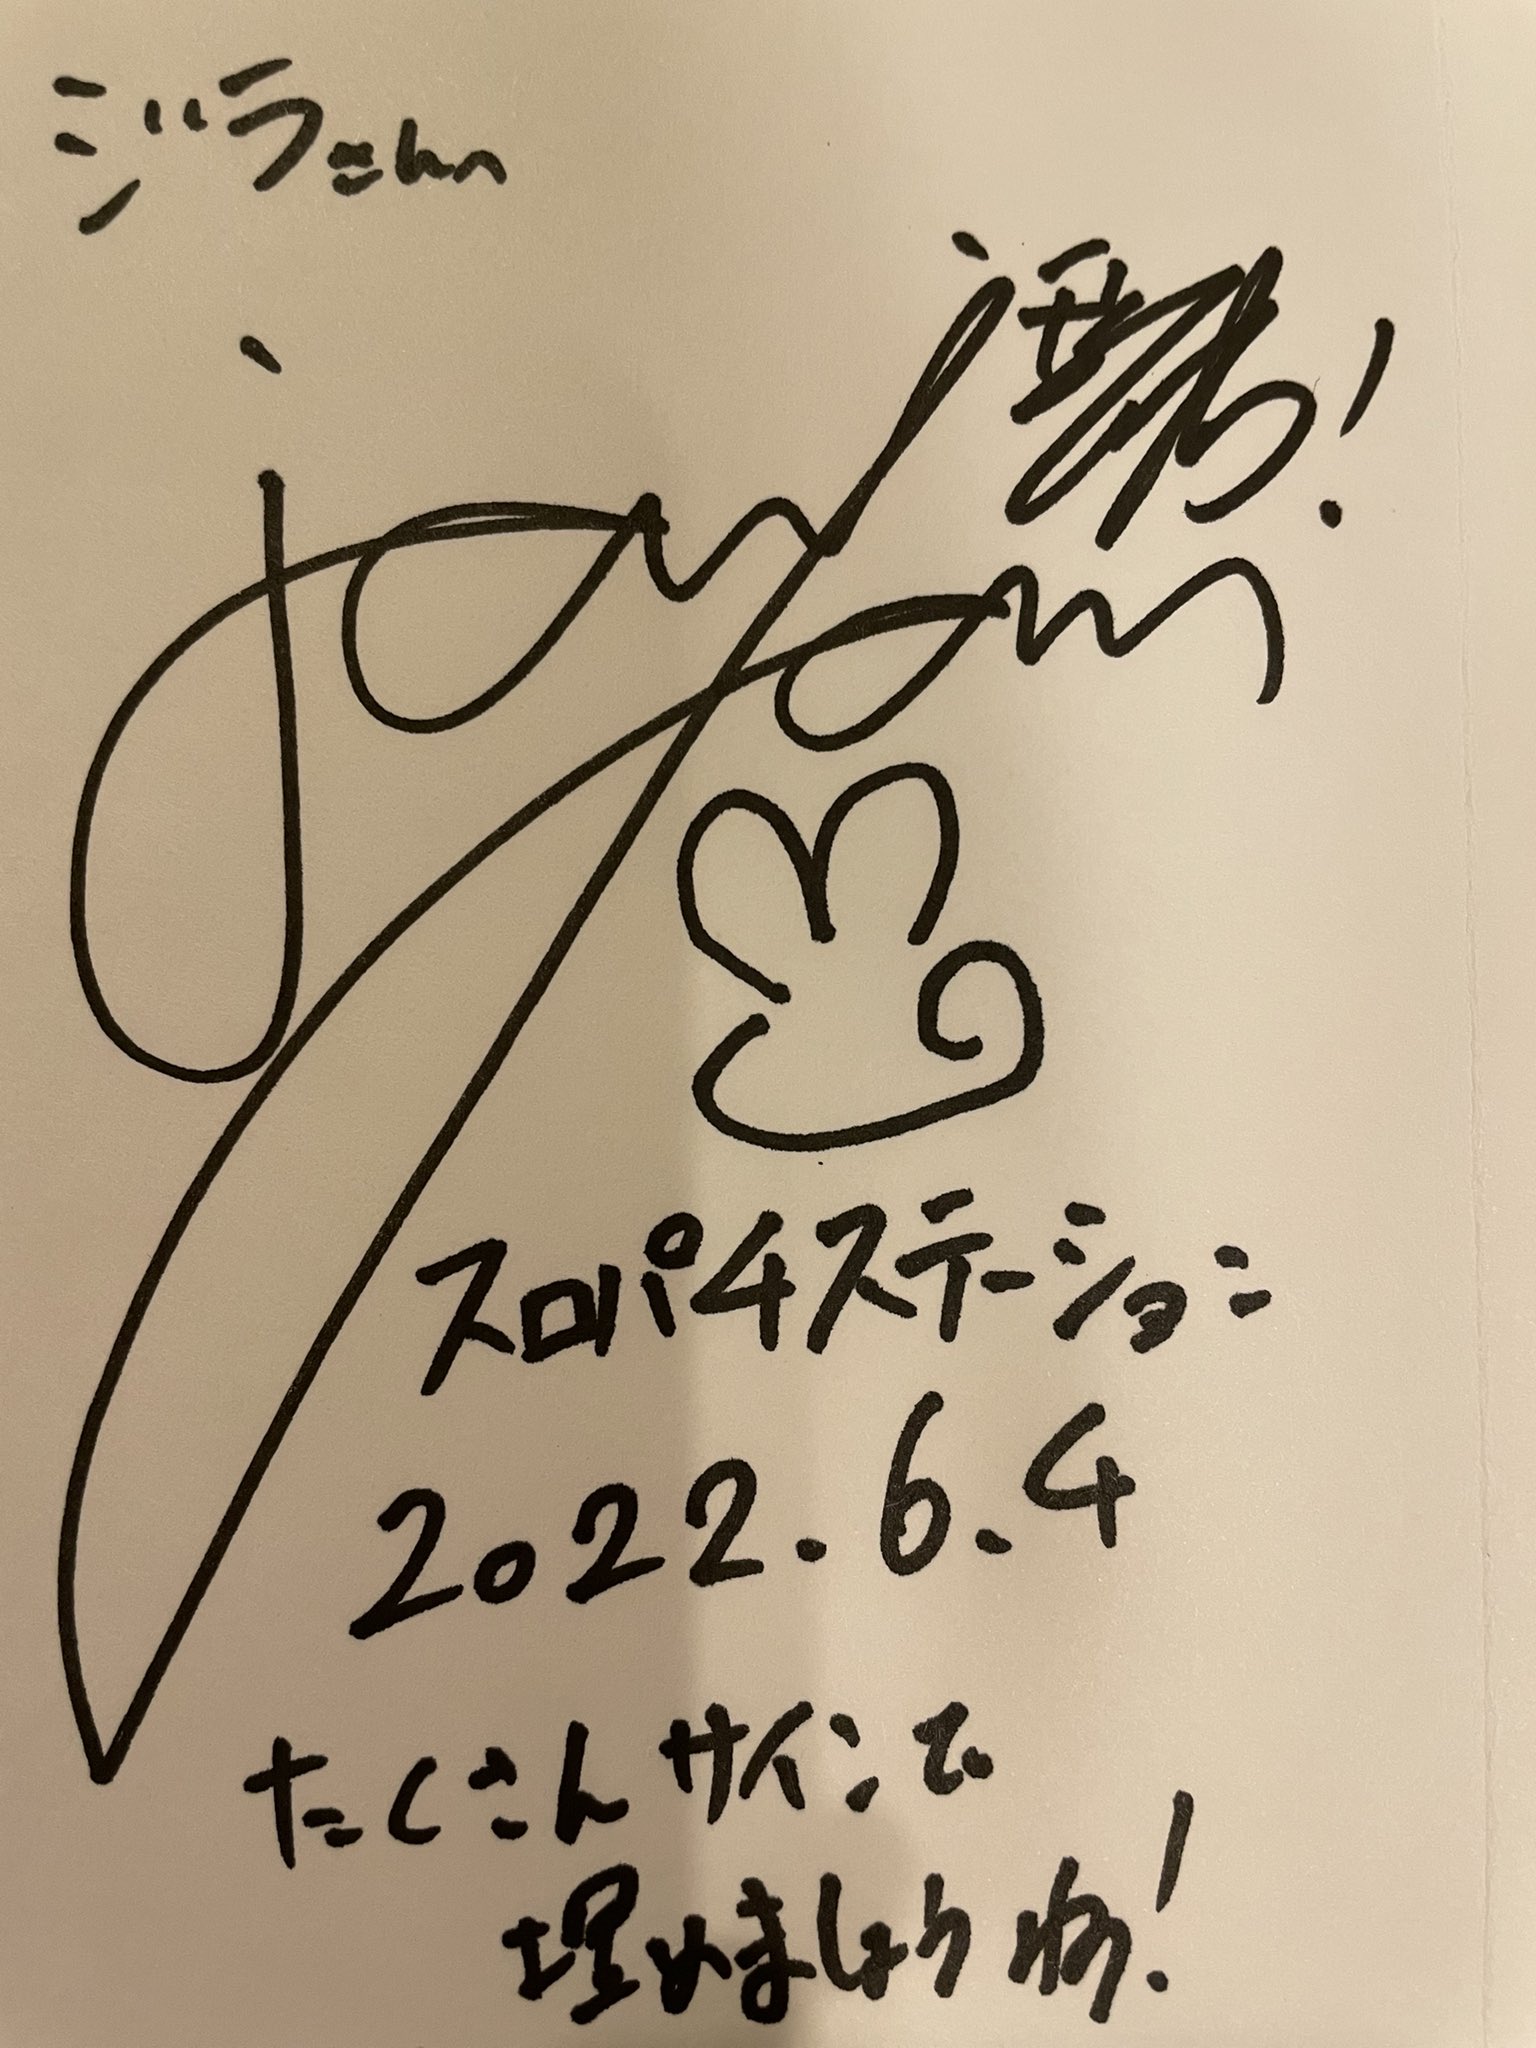 ジラさんへ
スロパチステーション
2022.6.4
たくさんサインで
埋めましょうね!